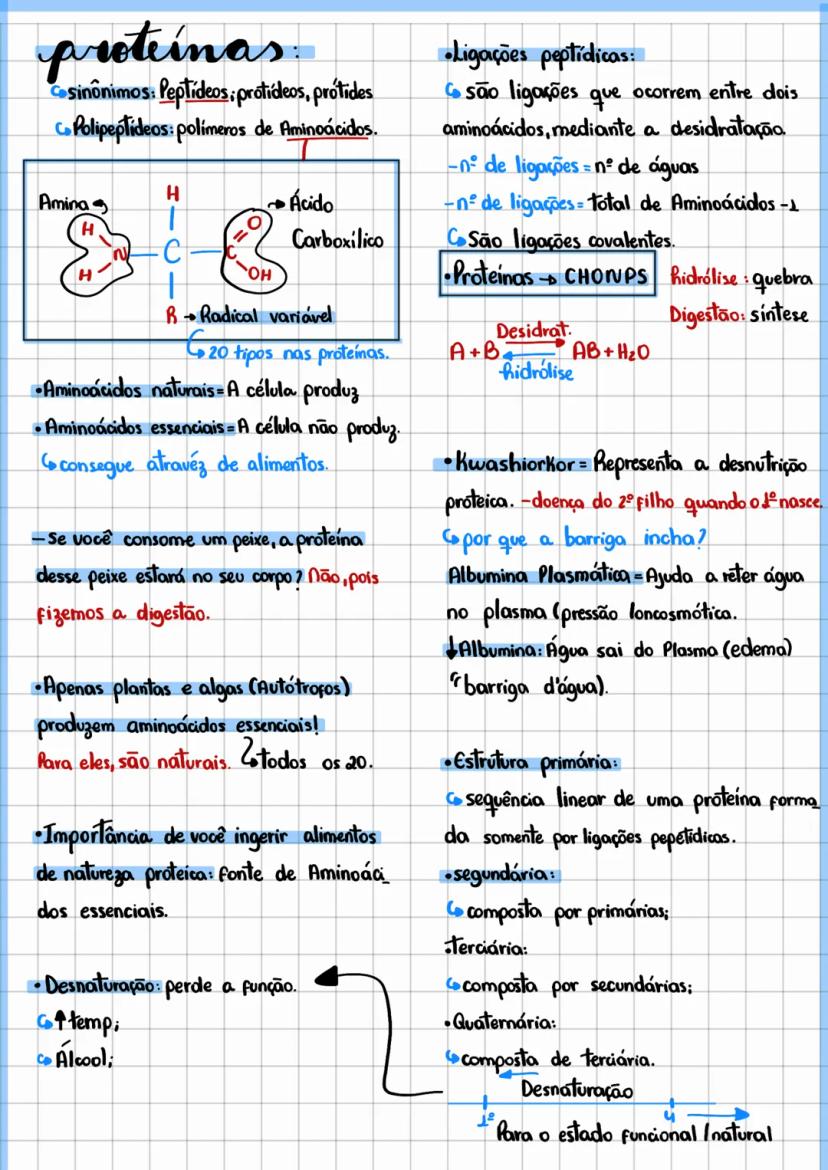 proteínas:
sinônimos: Peptídeos; protídeos, prótides
Polipeptídeos: polímeros de Aminoácidos.
Amina
H
Ácido
Carboxílico
H
H
N
C
C
O
OH
R → Radical variável
20 tipos nas proteínas.
•Aminoácidos naturais = A célula produz
•Aminoácidos essenciais = A célula não produz.
consegue atravéz de alimentos.
-Se você consome um peixe, a proteína
desse peixe estará no seu corpo? Não, pois
fizemos a digestão.
•Apenas plantas e algas (Autótrofos)
produzem aminoácidos essenciais!
Para eles, são naturais. todos os 20.
•Importância de você ingerir alimentos
de natureza proteica: fonte de Aminoáci_
dos essenciais.
•Desnaturação: perde a função.
↑temp;
Álcool;
•Ligações peptídicas:
são ligações que ocorrem entre dois
aminoácidos, mediante a desidratação
-nº de ligações = nº de águas
-nº de ligações = total de Aminoácidos -1
São ligações covalentes.
•Proteínas → CHONPS
hidrólise: quebra
Digestão: síntese
Desidrat.
A + B AB + H₂O
hidrólise
•Kwashiorkor = Representa a desnutrição
proteica. -doença do 2º filho quando o 1º nasce.
por que a barriga incha?
Albumina Plasmática = Ajuda a reter água
no plasma (pressão loncosmótica.
↓Albumina: Água sai do Plasma (edema)
"barriga d'água).
•Estrutura primária:
sequência linear de uma proteína forma_
da somente por ligações pepétidicas.
•segundária:
composta por primárias;
•terciária:
composta por secundárias;
•Quaternária:
composta de terciária.
Desnaturação
1º
4
Para o estado funcional/natural